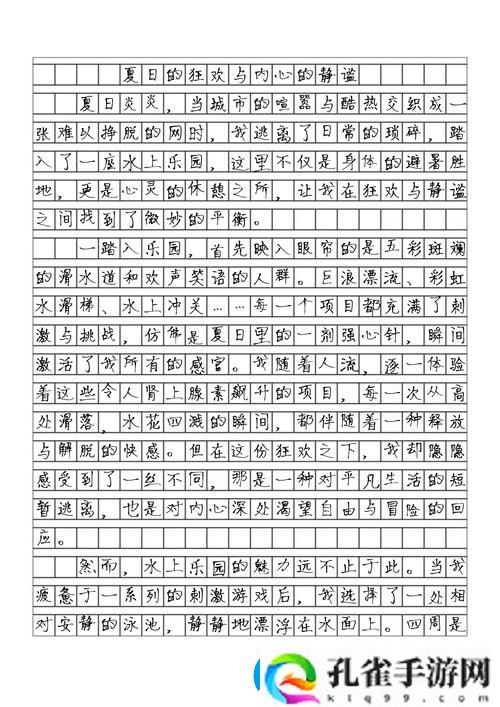 夏日的狂欢与内心的静谧
夏日炎炎，当城市的喧嚣与酷热交织成一
张难以挣脱的网时，我逃离了日常的琐碎，踏
入了一座水上乐园，这里不仅是身体的避暑胜
地，更是心灵的休憩之所，让我在狂欢与静谧
之间找到了微妙的平衡。
一踏入乐园，首先映入眼帘的是五彩斑斓
的滑水道和欢声笑语的人群。巨浪漂流、彩虹
水滑梯、水上冲关……每一个项目都充满了刺
激与挑战，仿佛是夏日里的一剂强心针，瞬间
激活了我所有的感官。我随着人流，逐一体验
着这些令人肾上腺素飙升的项目，每一次从高
处滑落，水花四溅的瞬间，都伴随着一种释放
与解脱的快感。但在这份狂欢之下，我却隐隐
感受到了一丝不同，那是一种对平凡生活的短
暂逃离，也是对内心深处渴望自由与冒险的回
应。
然而，水上乐园的魅力远不止于此。当我
疲惫于一系列的刺激游戏后，我选择了一处相
对安静的泳池，静静地漂浮在水面上。四周是
孔雀手游网
ktq99.com